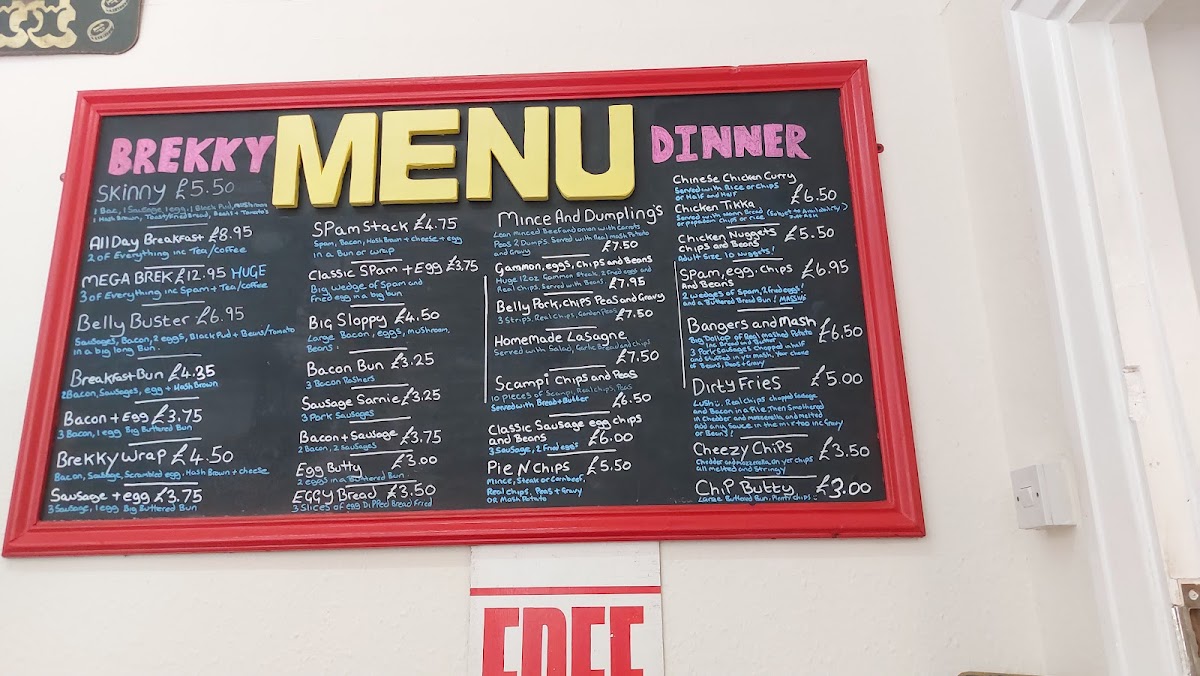 MENU
BREKKY
Skinny £5.50
1 Bac, 1 Sausage, 1 egg, 1 Black Pud, Mushroom
1 Hash Brown, Toast/Fried Bread, Beans + Tomato's
All Day Breakfast £8.95
2 of Everything inc Tea/Coffee
MEGA BREK £12.95 HUGE
3 of Everything inc Spam + Tea/Coffee
Belly Buster £6.95
Sausages, Bacon, 2 eggs, Black Pud + Beans/Tomato
in a big long Bun.
Breakfast Bun £4.35
2 Bacon, Sausages, egg + Hash Brown
Bacon + Egg £3.75
3 Bacon, 1 egg Big Buttered Bun
Brekky Wrap £4.50
Bacon, Sausage, Scrambled egg, Hash Brown + cheese
Sausage + egg £3.75
3 Sausage, 1 egg Big Buttered Bun
SPam Stack £4.75
Spam, Bacon, Hash Brown + cheese + egg
in a Bun or wrap
Classic SPam + Egg £3.75
Big wedge of Spam and
Fried egg in a big bun
Big Sloppy £4.50
Large Bacon, eggs, mushroom,
Beans.
Bacon Bun £3.25
3 Bacon Rashers
Sausage Sarnie £3.25
3 Pork Sausages
Bacon + Sausage £3.75
2 Bacon, 2 Sausages
Egg Butty £3.00
2 eggs in a Buttered Bun
EGGY Bread £3.50
3 Slices of egg Dipped Bread Fried
DINNER
Mince And Dumpling's
Lean minced Beef and onion with Carrots
Peas 2 Dump's. Served with Real mash Potato
and Gravy
£7.50
Gammon, eggs, Chips and Beans
Huge 12oz Gammon Steak, 2 Fried eggs and
Real Chips, Served with Beans
£7.95
Belly Pork, Chips Peas and Gravy
3 Strips, Real Chips, Garden Peas
£7.50
Homemade Lasagne
Served with Salad, Garlic Bread and Chips
£7.50
Scampi Chips and Peas
10 Pieces of Scampi, Real chips, Peas
Served with Bread + Butter
£6.50
Classic Sausage egg Chips
and Beans £6.00
3 Sausage, 2 Fried eggs
Pie N Chips £5.50
Mince, Steak or Cornbeef,
Real Chips, Peas + Gravy
OR Mash Potato
Chinese Chicken Curry
Served with Rice or Chips
or Half and Half £6.50
Chicken Tikka
Served with Naan Bread (Subject to Availability)
or papadom Chips or rice Just Ask
Chicken Nuggets £5.50
Chips and Beans
Adult Size 10 Nuggets!
Spam, egg, Chips £6.95
And Beans
2 wedges of Spam, 2 Fried eggs!
and a Buttered Bread Bun! MASSIVE
Bangers and Mash £6.50
Big Dollop of Real mashed Potato
Inc Bread and Butter
3 Pork Sausages Chopped in half
and stuffed in yer mash, Yer choice
of Beans, Peas + Gravy
Dirty Fries £5.00
Lush, Real Chips Chopped Sausage
and Bacon in a Pile, Then Smothered
in Chedder and mozzerella, and melted
Add any Sauce in the mix too inc Gravy
or Beans!
Cheezy Chips £3.50
Chedder and mozzerella on yer chips
all melted and Stringy
Chip Butty £3.00
Large Buttered Bun, Plenty Chips
FREE